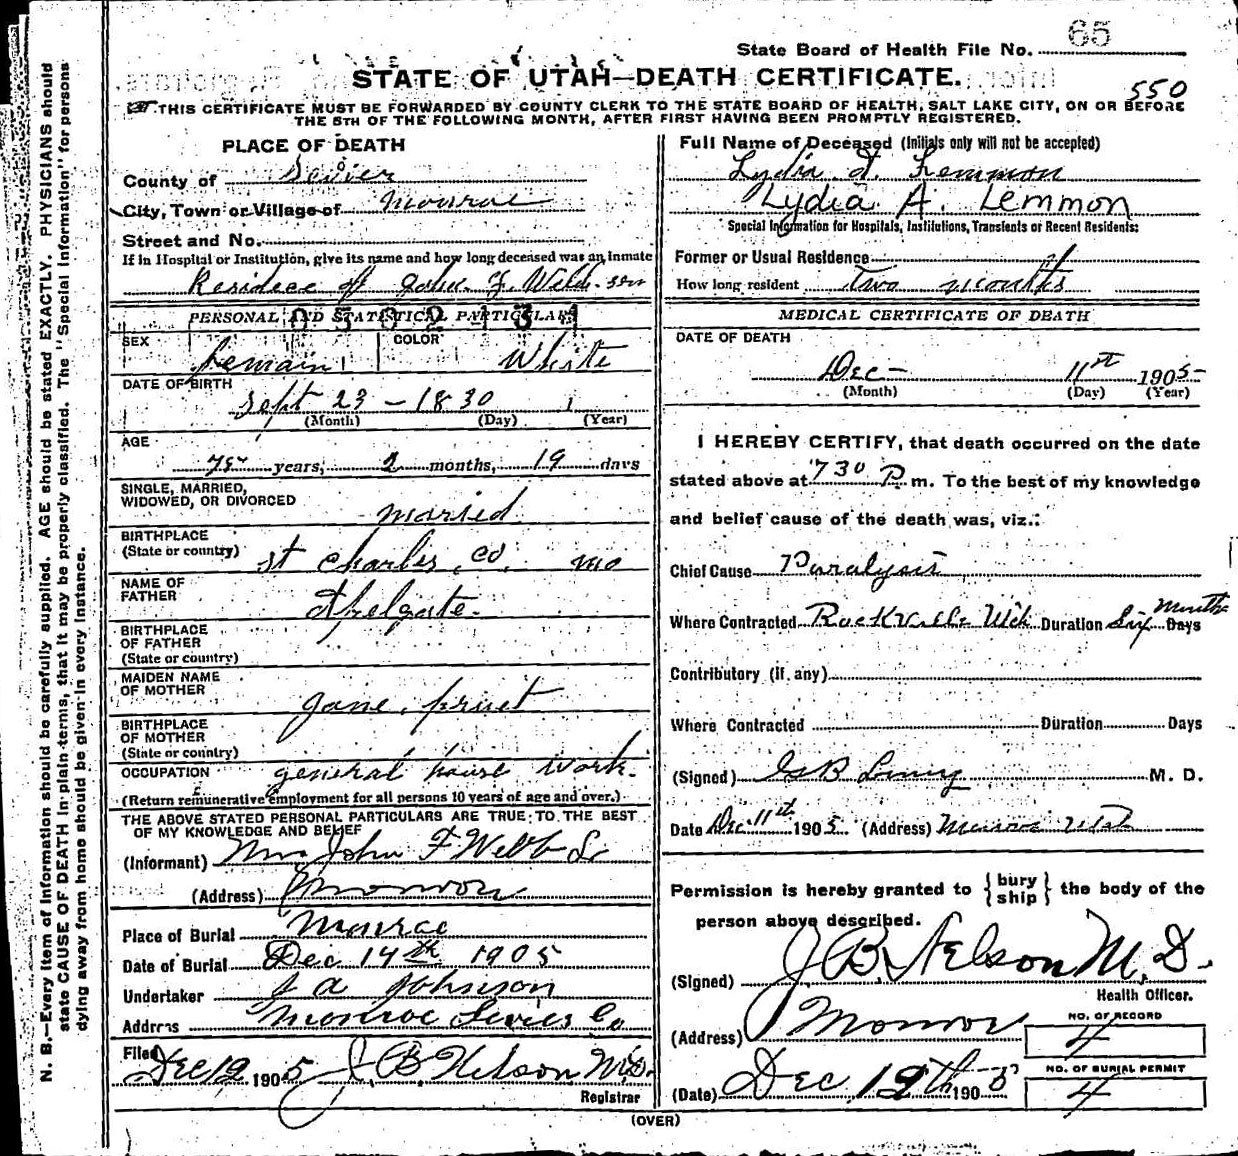 State Board of Health File No. 65
STATE OF UTAH—DEATH CERTIFICATE.
550
THIS CERTIFICATE MUST BE FORWARDED BY COUNTY CLERK TO THE STATE BOARD OF HEALTH, SALT LAKE CITY, ON OR BEFORE
THE 5TH OF THE FOLLOWING MONTH, AFTER FIRST HAVING BEEN PROMPTLY REGISTERED.
N. B.—Every item of information should be carefully supplied. AGE should be stated EXACTLY. PHYSICIANS should
state CAUSE OF DEATH in plain terms, that it may be properly classified. The "Special Information" for persons
dying away from home should be given in every instance.
PLACE OF DEATH
County of Sevier
City, Town or Village of Monroe
Street and No.
If in Hospital or Institution, give its name and how long deceased was an inmate
Residece of John F. Webb sen
PERSONAL AND STATISTICAL PARTICULARS
0302131
SEX
COLOR
femain White
DATE OF BIRTH
Sept 23 - 1830
(Month) (Day) (Year)
AGE
75 years, 2 months, 19 days
SINGLE, MARRIED,
WIDOWED, OR DIVORCED
maried
BIRTHPLACE
(State or country) st charles, co, mo
NAME OF
FATHER
Aplegate.
BIRTHPLACE
OF FATHER
(State or country)
MAIDEN NAME
OF MOTHER
Jane, pruet
BIRTHPLACE
OF MOTHER
(State or country)
OCCUPATION general house work.
(Return remunerative employment for all persons 10 years of age and over.)
THE ABOVE STATED PERSONAL PARTICULARS ARE TRUE TO THE BEST
OF MY KNOWLEDGE AND BELIEF
(Informant) Mrs John F Webb Sr
(Address) Monroe
Place of Burial Monroe
Date of Burial Dec 14th 1905
Undertaker J A Johnson
Address Monroe Sevier Co
Filed Dec 12 1905 J B Nelson M.D.
Registrar
Full Name of Deceased (Initials only will not be accepted)
Lydia A. Lemmon
Lydia A. Lemmon
Special Information for Hospitals, Institutions, Transients or Recent Residents:
Former or Usual Residence
How long resident Two months
MEDICAL CERTIFICATE OF DEATH
DATE OF DEATH
Dec - 11st 1905
(Month) (Day) (Year)
I HEREBY CERTIFY, that death occurred on the date
stated above at 730 P. m. To the best of my knowledge
and belief cause of the death was, viz.:
Chief Cause Paralysis
Where Contracted Rockville Utah Duration Six Days
months
Contributory (if any)
Where Contracted Duration Days
(Signed) M. D.
Date Dec 11st 1905 (Address) Monroe Utah
Permission is hereby granted to { bury ship } the body of the
person above described.
(Signed) J B Nelson M. D.
Health Officer.
(Address) Monroe
NO. OF RECORD
4
(Date) Dec 12th 1905
NO. OF BURIAL PERMIT
4
(OVER)